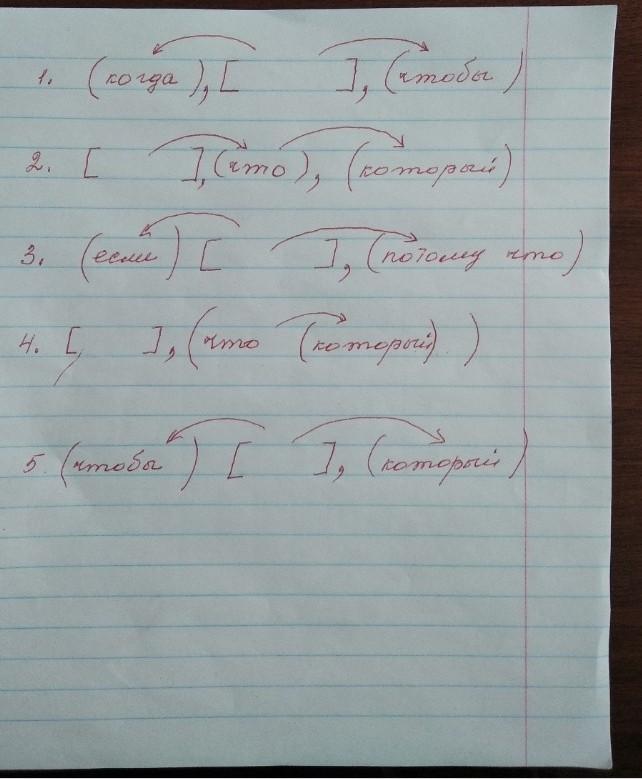 1. (когда), [ ], (чтобы)
2. [ ], (что), (который)
3. (если) [ ], (потому что)
4. [ ], (что (который) )
5. (чтобы) [ ], (который)